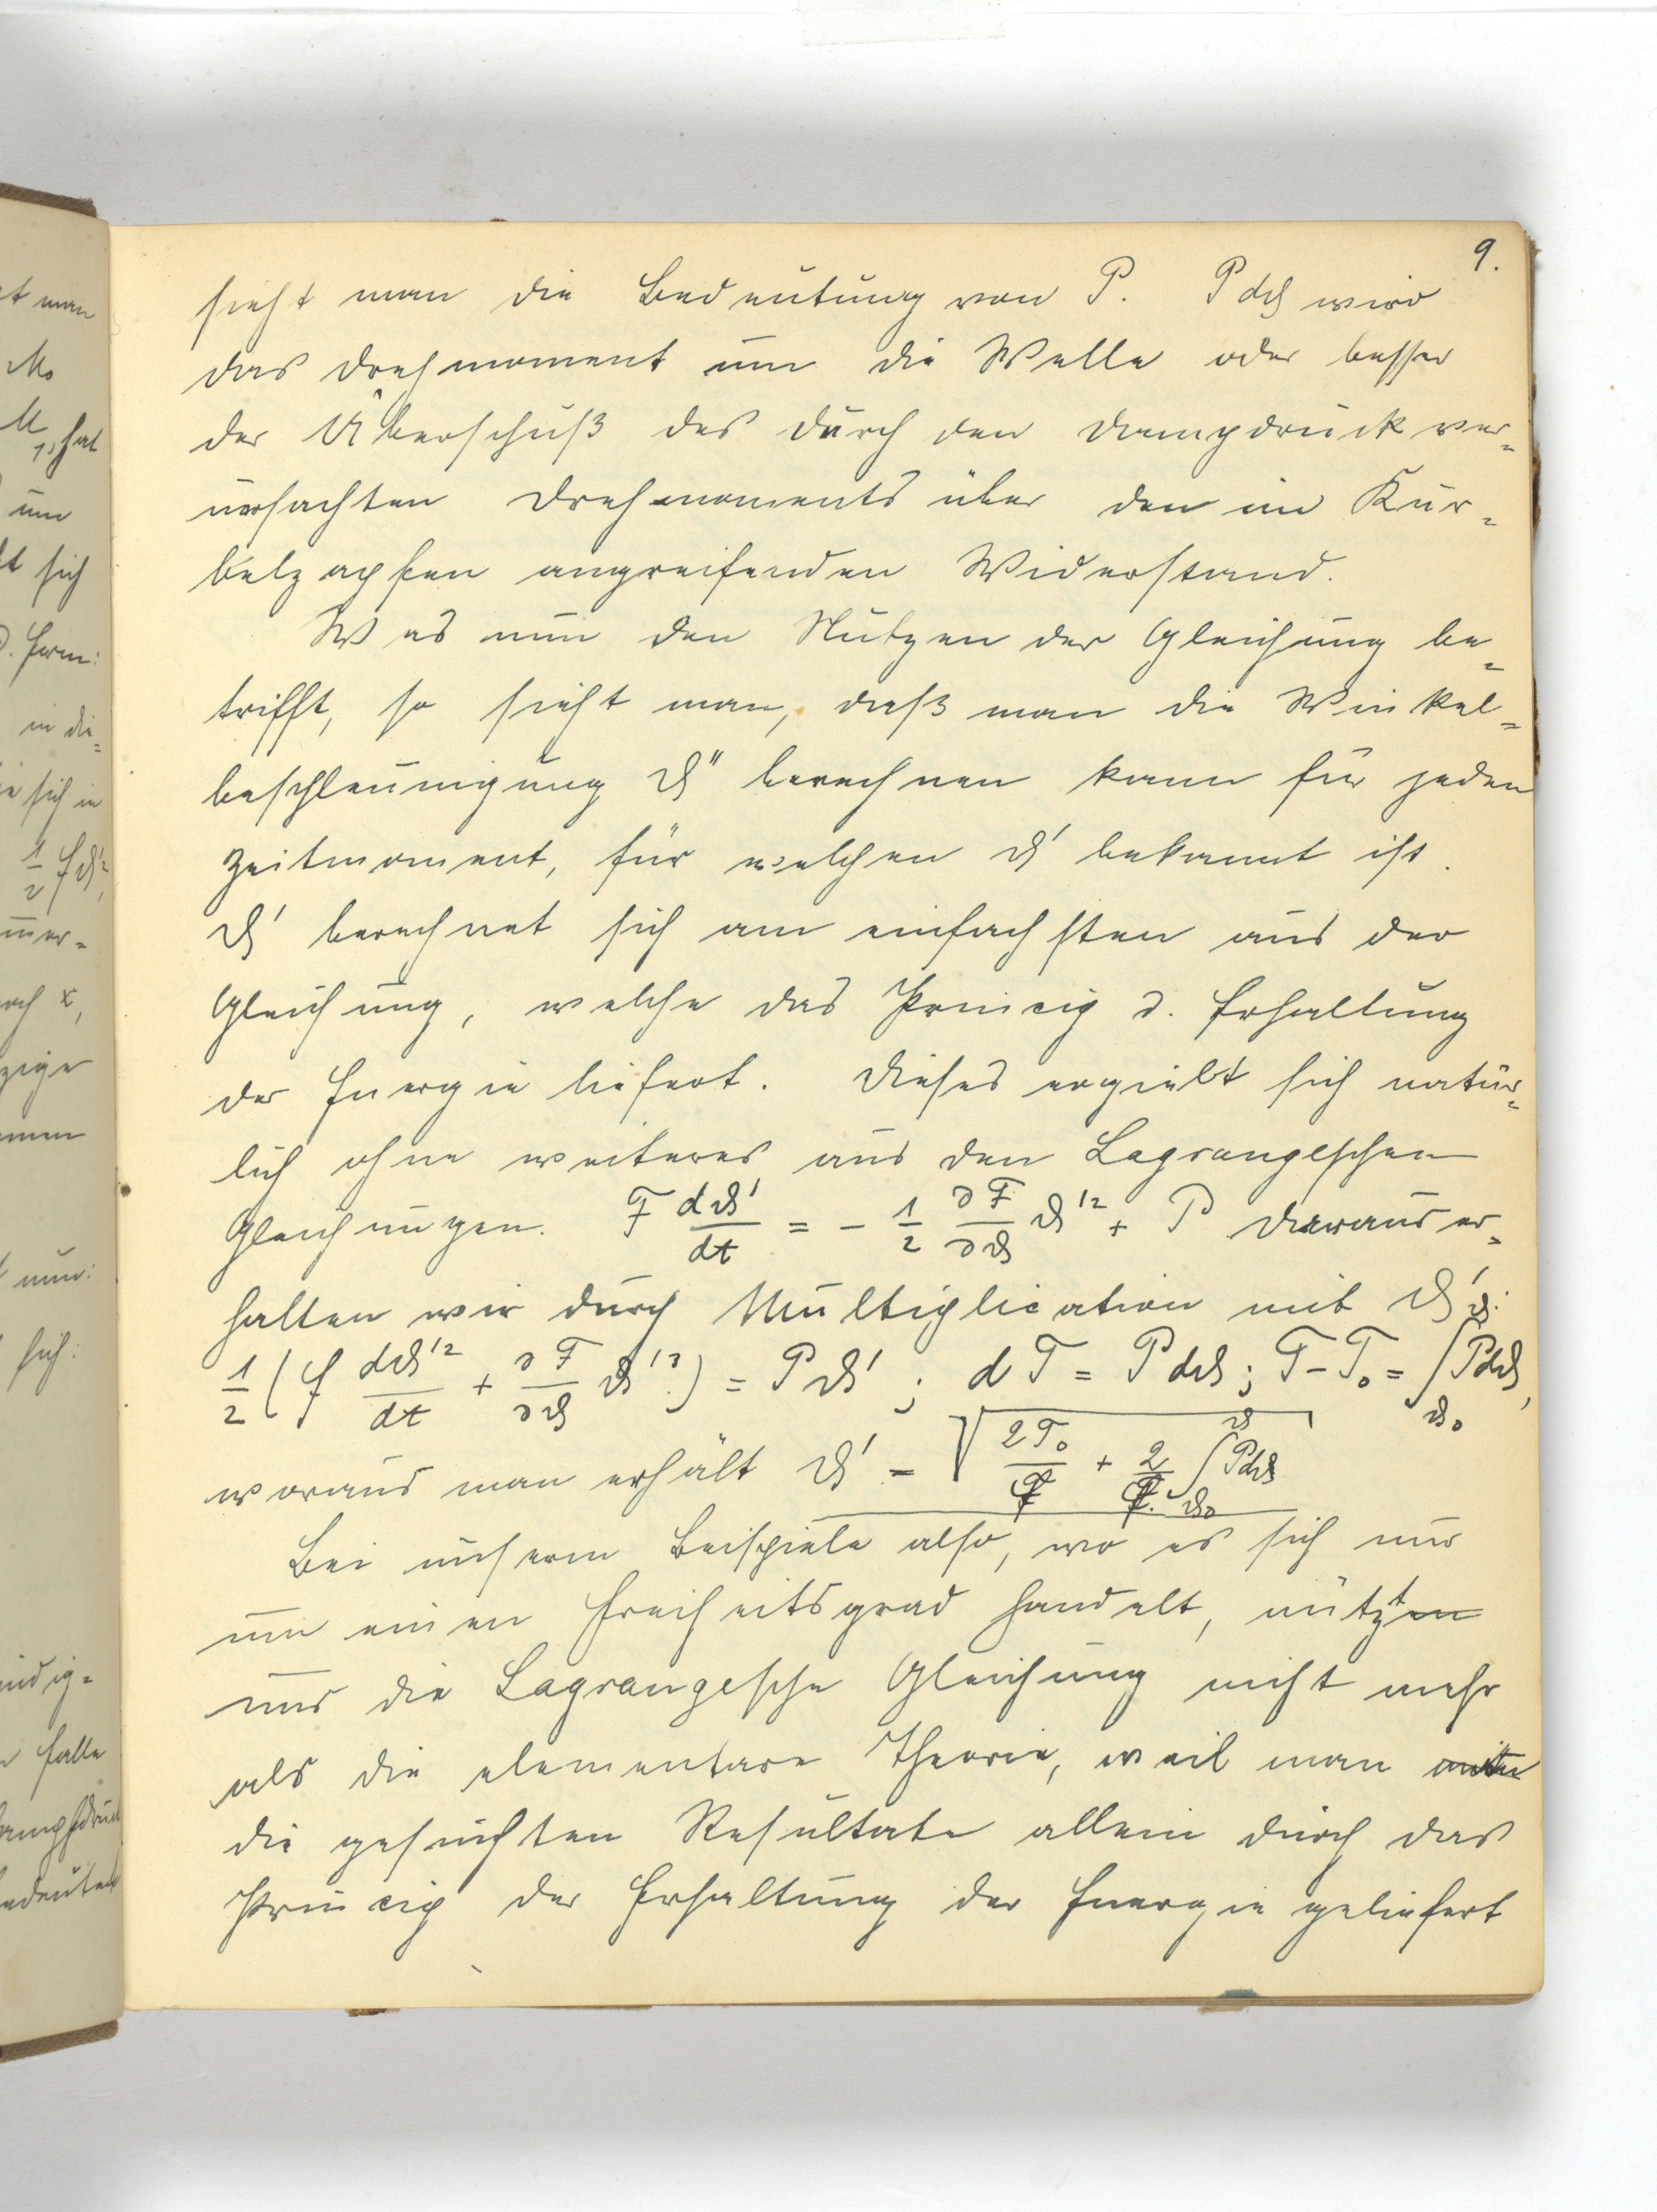 9.
sieht man die Bedeutung von P. Pdϑ wird
das Drehmoment um die Welle oder besser
der Überschuß des durch den Dampfdruck ver-
ursachten Drehmoments über den im Kur-
belzapfen angreifenden Widerstand.
Was nun den Nutzen der Gleichung be-
trifft, so sieht man, daß man die Winkel-
beschleunigung ϑ″ berechnen kann für jeden
Zeitmoment, für welchen ϑ′ bekannt ist.
ϑ′ berechnet sich am einfachsten aus der
Gleichung, welche das Princip d. Erhaltung
der Energie liefert. Dieses ergiebt sich natür-
lich ohne weiteres aus den Lagrangeschen
Gleichungen. F dϑ′/dt = − 1/2 ∂F/∂ϑ ϑ′² + P Daraus er-
halten wir durch Multiplication mit ϑ′:
1/2 (F dϑ′²/dt + ∂F/∂ϑ ϑ′³) = Pϑ′ ; dT = Pdϑ ; T − T₀ = ∫_ϑ₀^ϑ Pdϑ,
woraus man erhält ϑ′ = √(2T₀/F + 2/F ∫_ϑ₀^ϑ Pdϑ)
Bei unserm Beispiele also, wo es sich nur
um einen Freiheitsgrad handelt, nützt
uns die Lagrangesche Gleichung nicht mehr
als die elementare Theorie, weil man
die gesuchten Resultate allein durch das
Princip der Erhaltung der Energie geliefert
et man
M₀
M₁, hat
um
sich
D. Form:
in die-
sich in
1/2 Fϑ′²,
mer-
nach x,
nun:
sich:
Falle